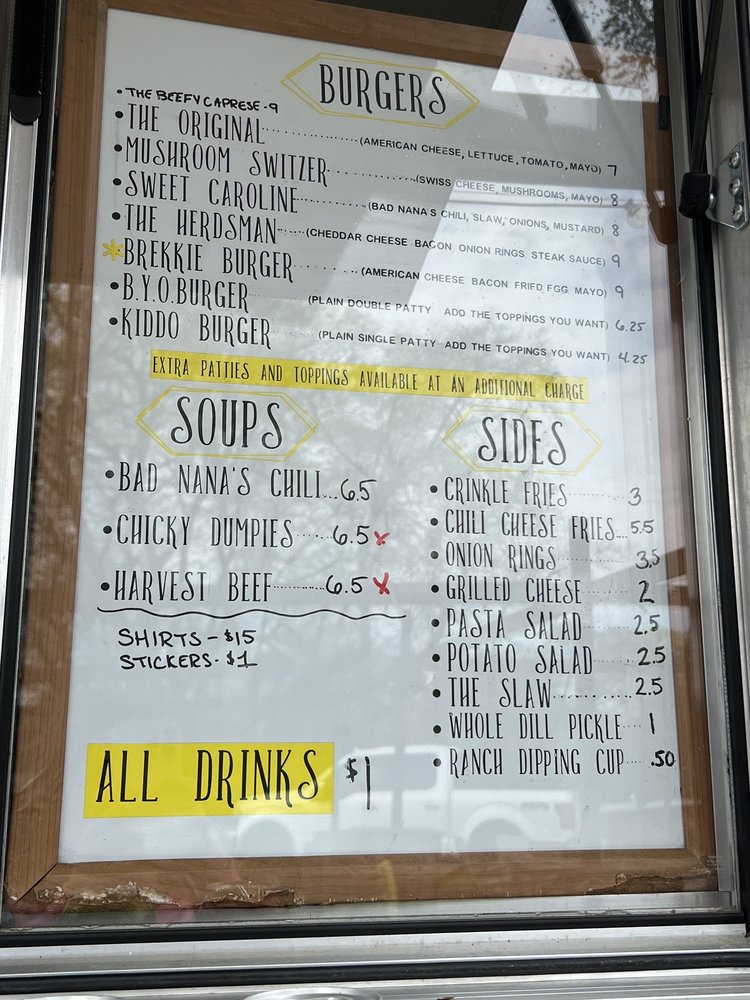 BURGERS
•THE BEEFY CAPRESE-9
•THE ORIGINAL..............(AMERICAN CHEESE, LETTUCE, TOMATO, MAYO) 7
•MUSHROOM SWITZER..............(SWISS CHEESE, MUSHROOMS, MAYO) 8
•SWEET CAROLINE..........(BAD NANA'S CHILI, SLAW, ONIONS, MUSTARD) 8
•THE HERDSMAN......(CHEDDAR CHEESE BACON ONION RINGS STEAK SAUCE) 9
*BREKKIE BURGER..........(AMERICAN CHEESE BACON FRIED EGG MAYO) 9
•B.Y.O.BURGER (PLAIN DOUBLE PATTY ADD THE TOPPINGS YOU WANT) 6.25
•KIDDO BURGER (PLAIN SINGLE PATTY ADD THE TOPPINGS YOU WANT) 4.25
EXTRA PATTIES AND TOPPINGS AVAILABLE AT AN ADDITIONAL CHARGE
SOUPS
•BAD NANA'S CHILI...6.5
•CHICKY DUMPIES.....6.5 x
•HARVEST BEEF..........6.5 x
SHIRTS-$15
STICKERS-$1
ALL DRINKS $1
SIDES
•CRINKLE FRIES..........3
•CHILI CHEESE FRIES...5.5
•ONION RINGS..........3.5
•GRILLED CHEESE..........2
•PASTA SALAD..........2.5
•POTATO SALAD.......2.5
•THE SLAW..........2.5
•WHOLE DILL PICKLE....1
•RANCH DIPPING CUP.....50